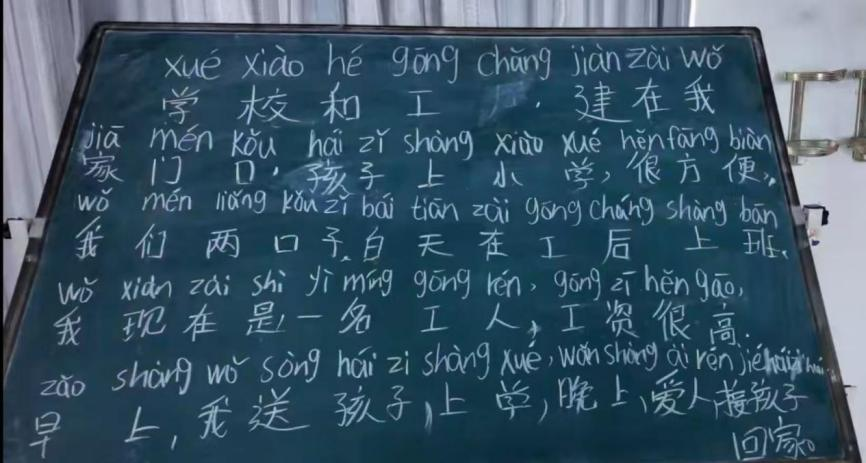 xué xiào hé gōng chǎng jiàn zài wǒ
学校和工 建在我
jiā mén kǒu hái zǐ shàng xiǎo xué hěn fāng biàn
家门口,孩子上小学,很方便,
wǒ mén liǎng kǒu zǐ bái tiān zài gōng chǎng shàng bān
我们两口子,白天在工后上班,
wǒ xiàn zài shì yì míng gōng rén, gōng zī hěn gāo,
我现在是一名工人,工资很高.
zǎo shàng wǒ sòng hái zi shàng xué, wǎn shang ài rén jiē hái zi huí
早上,我送孩子,上学,晚上,爱人接孩子
回家。